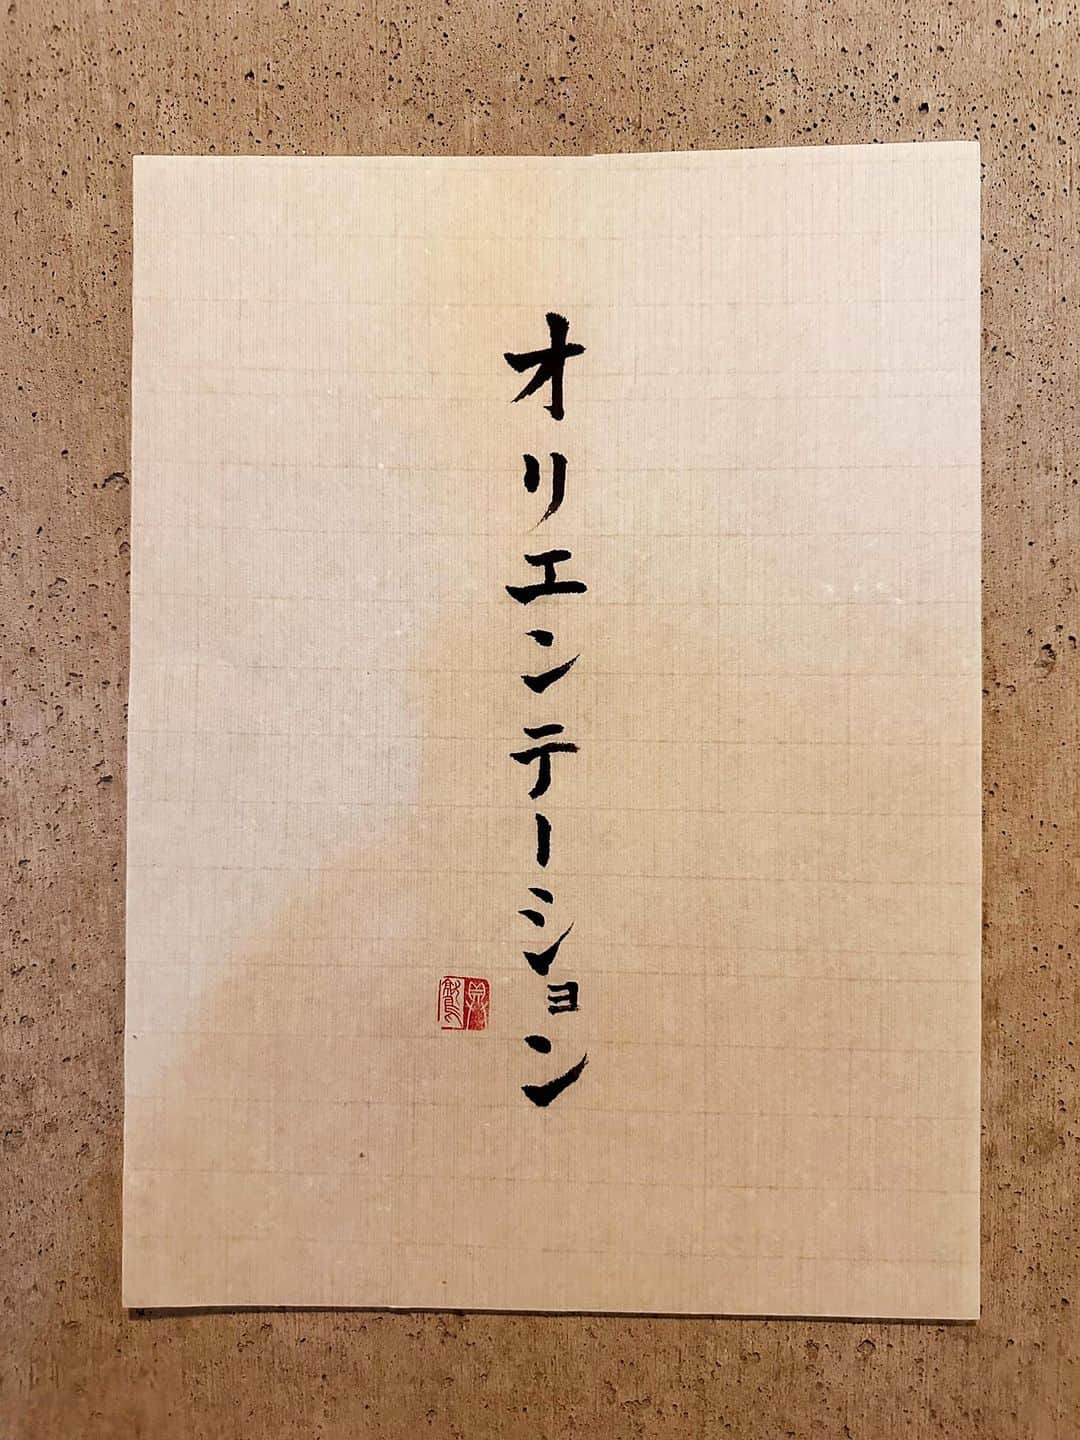 オリエンテーション